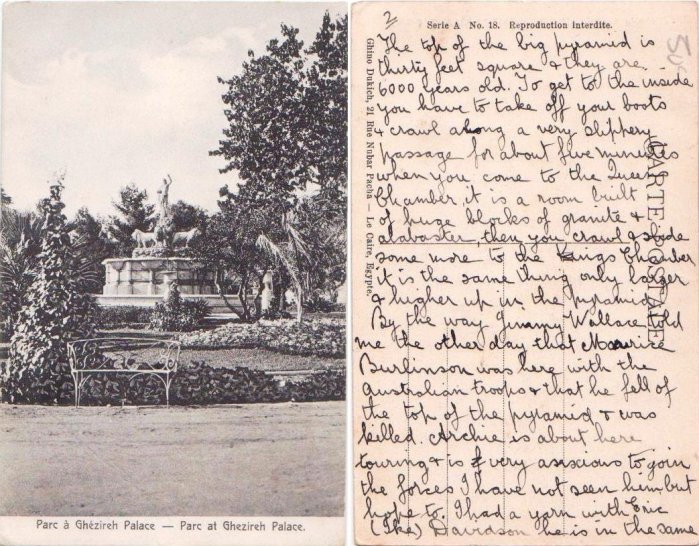 Parc à Ghézireh Palace — Parc at Ghezireh Palace.
2
Serie A No. 18. Reproduction interdite.
50
Ghino Dukich, 21 Rue Nubar Pacha — Le Caire, Egypte.
CARTE POSTALE
The top of the big pyramid is
thirty feet square & they are
6000 years old. To get to the inside
you have to take off your boots
& crawl along a very slippery
passage for about five minutes
when you come to the Queens
Chamber, it is a room built
of huge blocks of granite &
alabaster, then you crawl & slide
some more to the Kings Chamber
it is the same thing only larger
& higher up in the pyramid
By the way Jimmy Wallace told
me the other day that Maurice
Burlinson was here with the
Australian troops & that he fell of
the top of the pyramid & was
killed. Archie is about here
touring & is very asnxious to join
the forces I have not seen him but
hope to. I had a yarn with Eric
(Ike) Davidson he is in the same